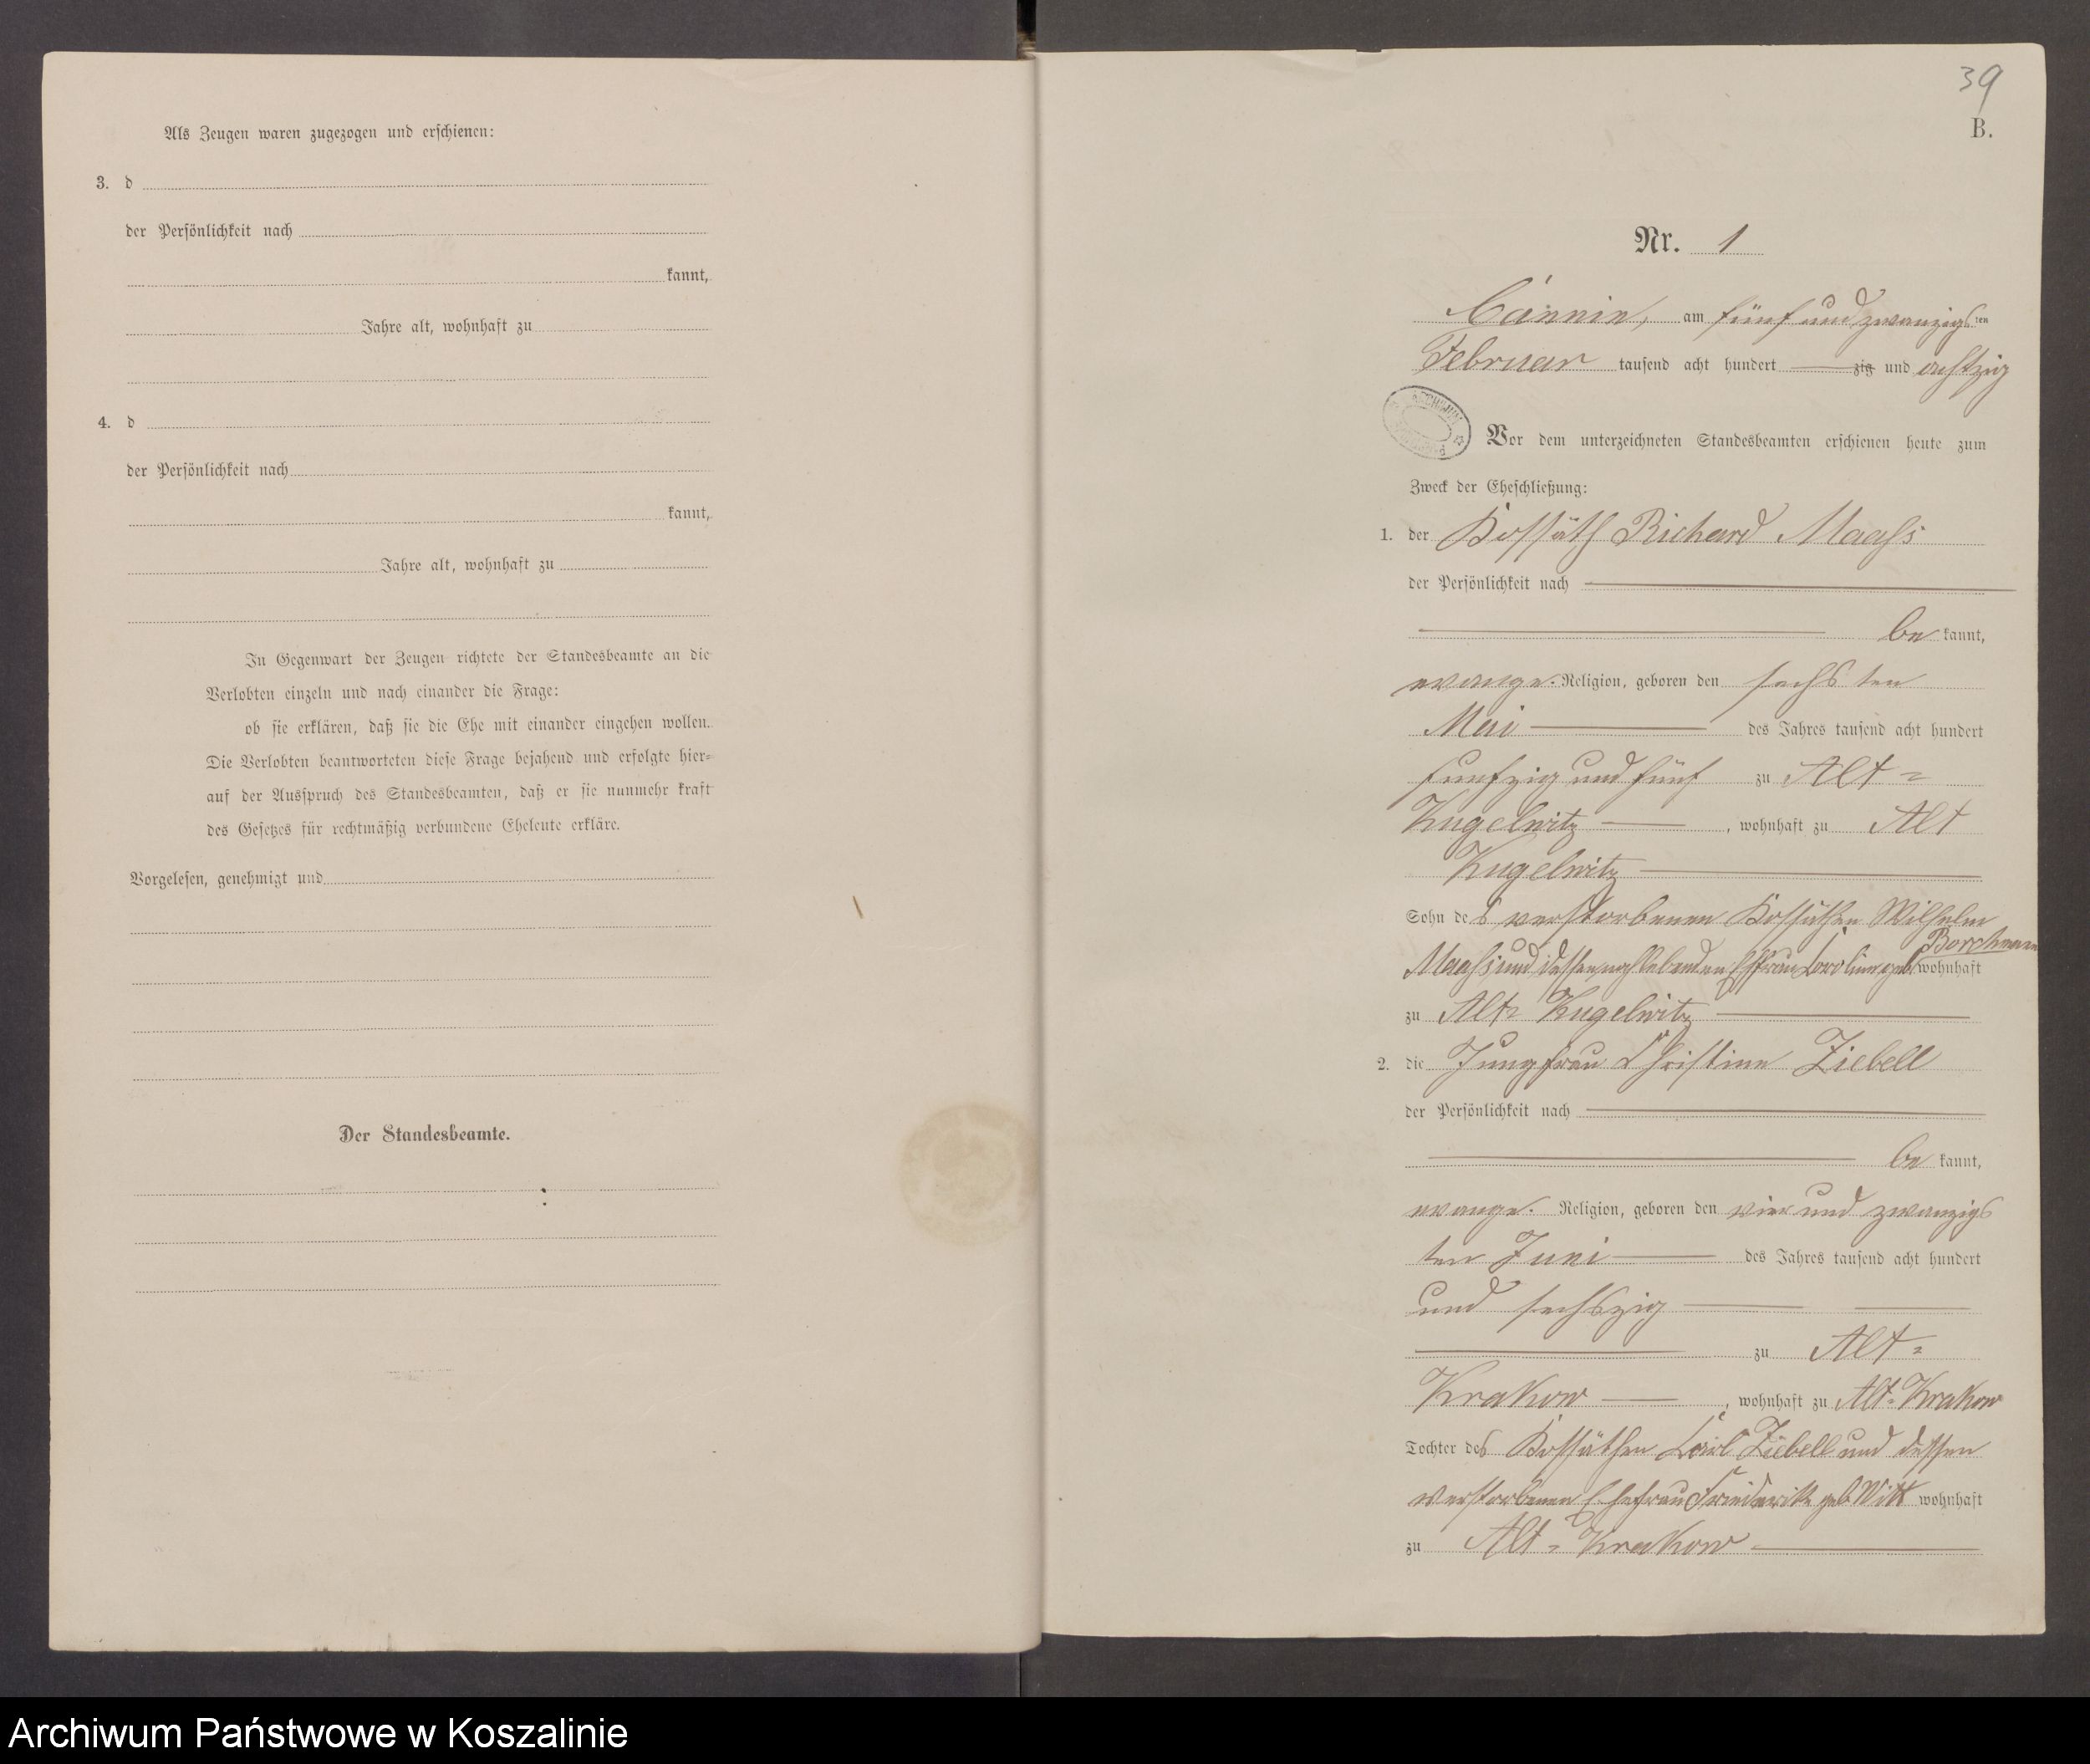 Als Zeugen waren zugezogen und erschienen:
3. d
der Persönlichkeit nach
kannt,
Jahre alt, wohnhaft zu
4. d
der Persönlichkeit nach
kannt,
Jahre alt, wohnhaft zu
In Gegenwart der Zeugen richtete der Standesbeamte an die
Verlobten einzeln und nach einander die Frage:
ob sie erklären, daß sie die Ehe mit einander eingehen wollen.
Die Verlobten beantworteten diese Frage bejahend und erfolgte hier-
auf der Ausspruch des Standesbeamten, daß er sie nunmehr kraft
des Gesetzes für rechtmäßig verbundene Eheleute erkläre.
Vorgelesen, genehmigt und
Der Standesbeamte.
39
B.
Nr. 1
Cannin, am fünf und zwanzigsten
Februar tausend acht hundert zig und achtzig
ARCHIWUM
Vor dem unterzeichneten Standesbeamten erschienen heute zum
Zweck der Eheschließung:
1. der Kossäth Richard Maaß
der Persönlichkeit nach
be kannt,
evange. Religion, geboren den sechsten
Mai des Jahres tausend acht hundert
funfzig und fünf zu Alt-
Kugelwitz, wohnhaft zu Alt
Kugelwitz
Sohn des verstorbenen Kossäthen Wilhelm
Borchmann
Maaß und dessen nachlebenden Ehefrau Caroline geb. wohnhaft
zu Alt- Kugelwitz
2. die Jungfrau Christine Ziebell
der Persönlichkeit nach
be kannt,
evange. Religion, geboren den vier und zwanzigs
ten Juni des Jahres tausend acht hundert
und sechszig
zu Alt-
Krakow, wohnhaft zu Alt-Krakow
Tochter des Kossäthen Carl Ziebell und dessen
verstorbenen Ehefrau Friederike geb. Witt wohnhaft
zu Alt-Krakow
Archiwum Państwowe w Koszalinie